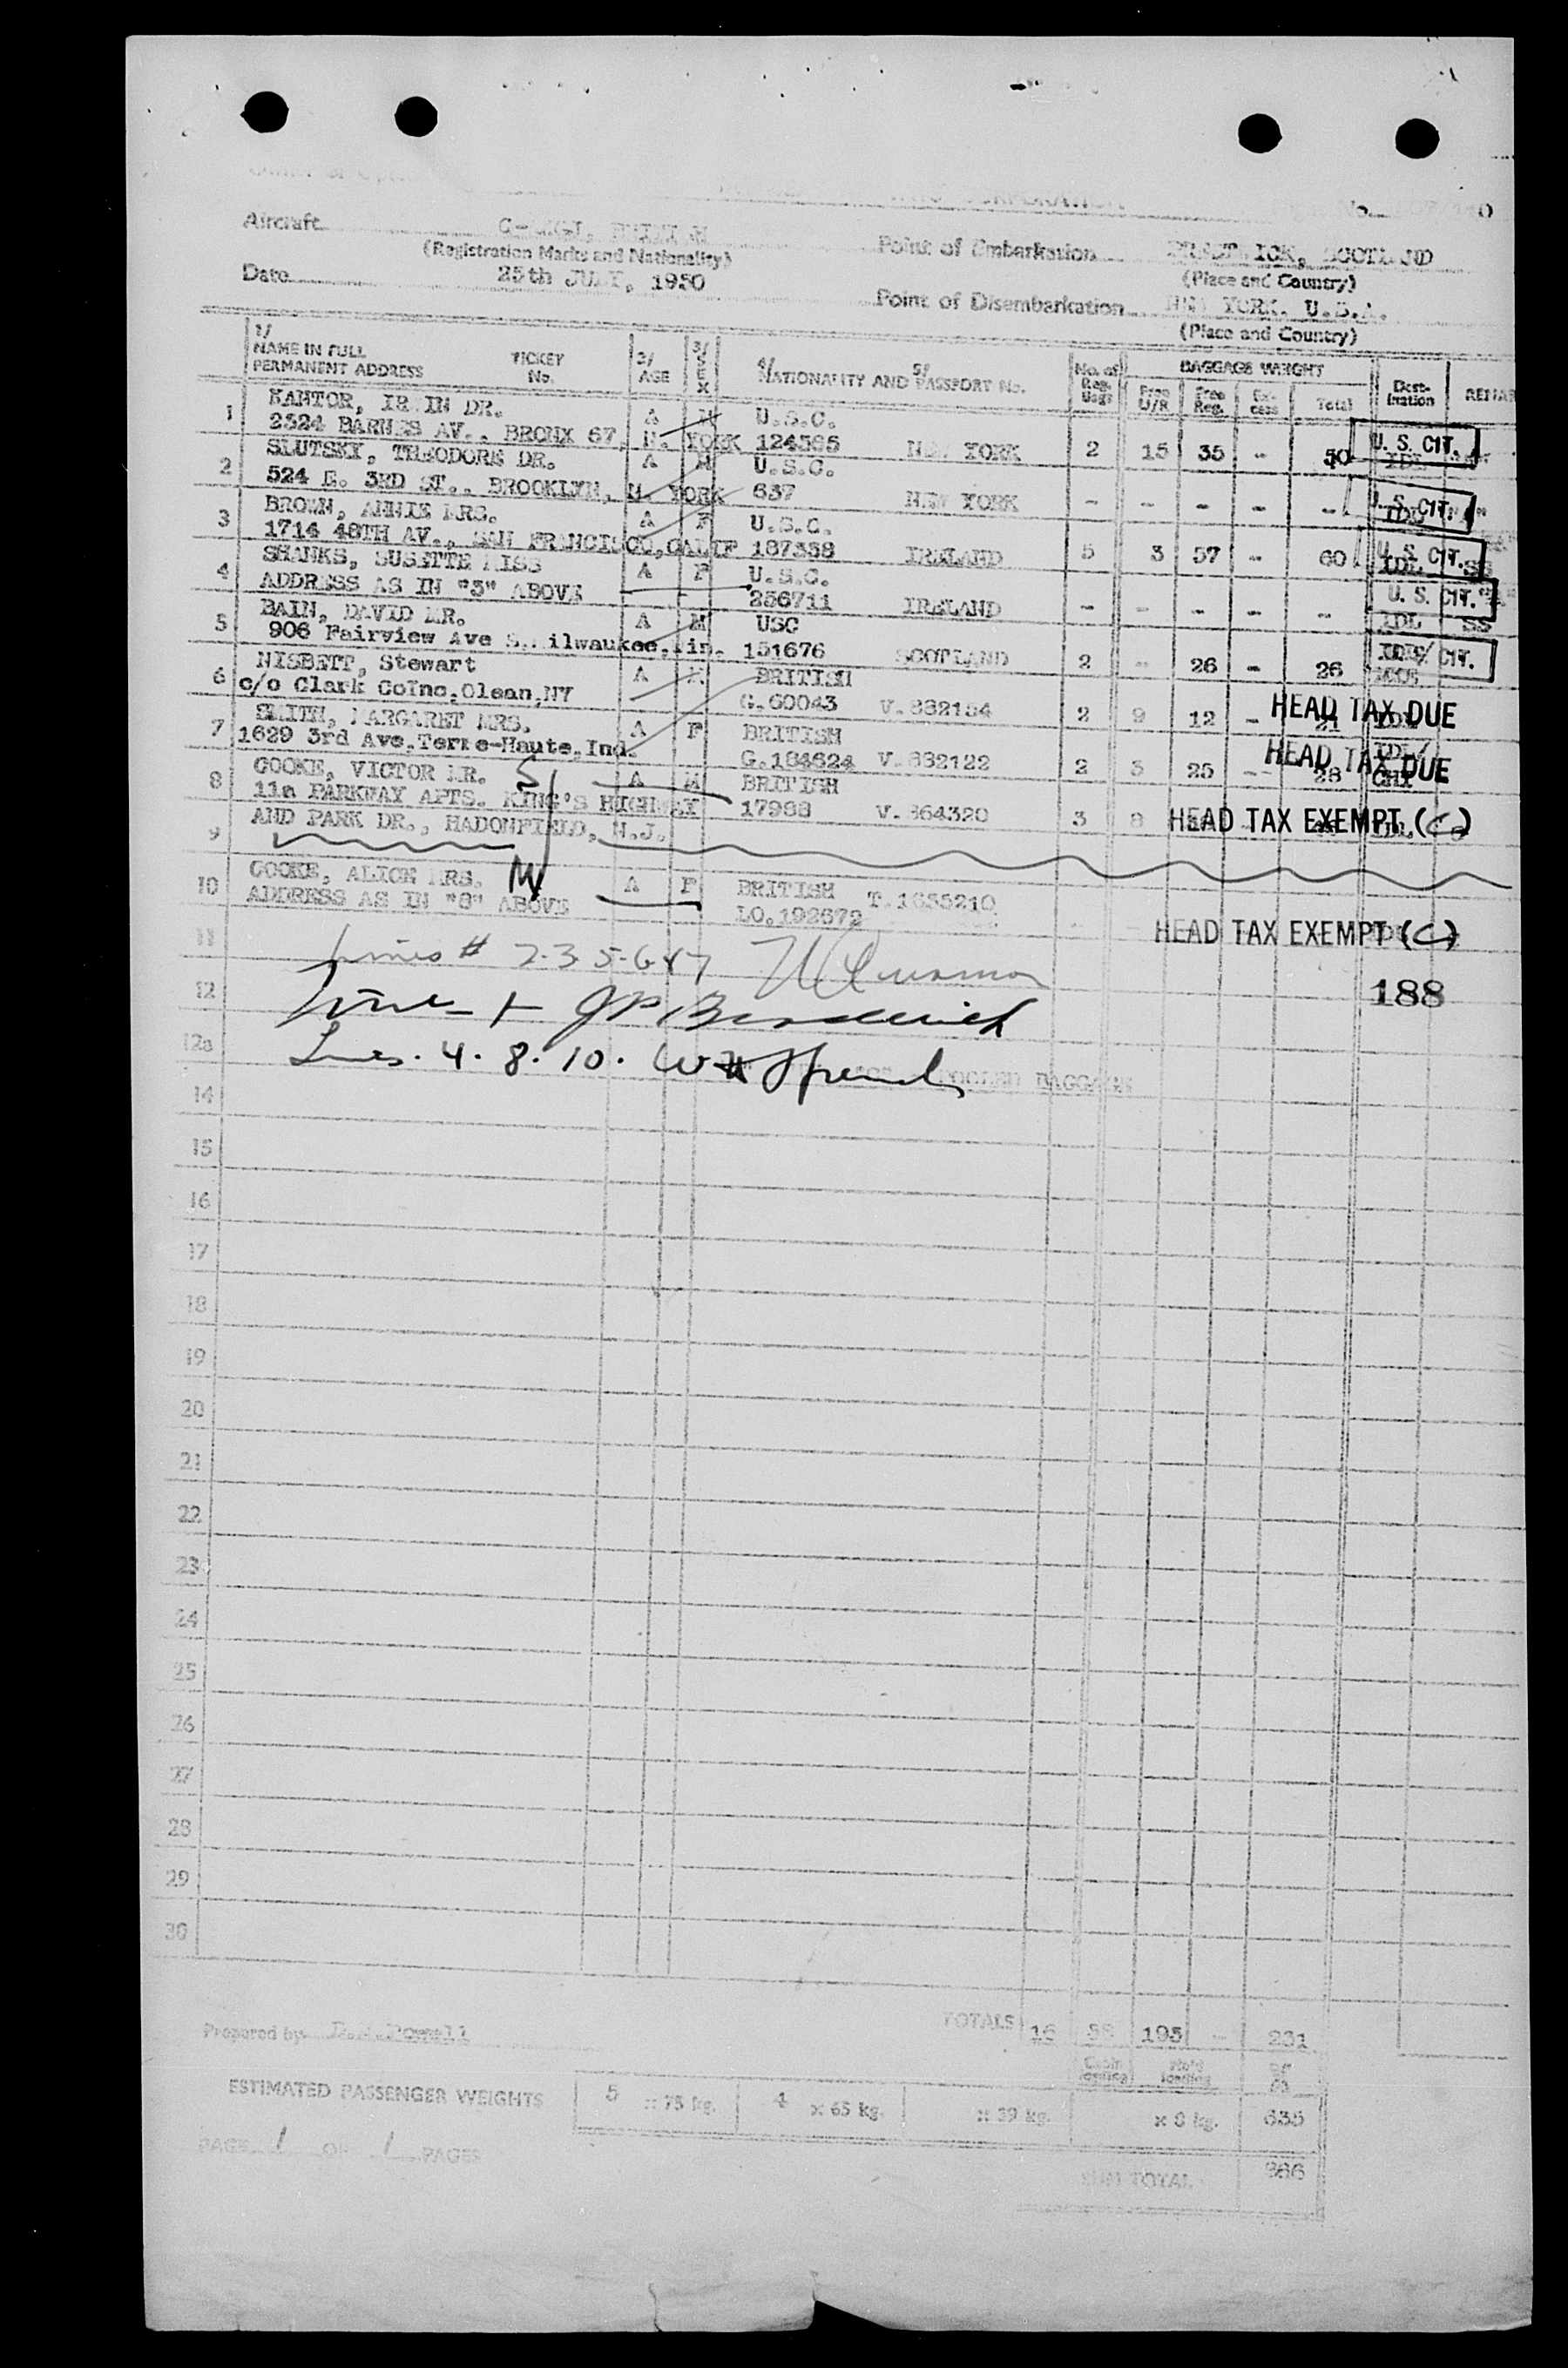 CORPORATION No.
Aircraft
(Registration Marks and Nationality)
Point of Embarkation PRESTWICK, SCOTLAND
(Place and Country)
Date 25th JULY, 1950
Point of Disembarkation NEW YORK. U.S.A.
(Place and Country)
1/ NAME IN FULL PERMANENT ADDRESS TICKET No. 3/ AGE 3/ SEX 4/ NATIONALITY AND 5/ PASSPORT No. No. of Reg. Bags BAGGAGE WEIGHT Dest-ination REMAR
Free U/R Free Reg. Ex-cess Total
1 KANTOR, IR IN DR. A M U.S.C.
2324 BARNES AV., BRONX 67, N. YORK 124365 NEW YORK 2 15 35 - 50 U. S. CIT. IDL
2 SLUTSKY, THEODORE DR. A M U.S.C.
524 E. 3RD ST., BROOKLYN, N YORK 637 NEW YORK - - - - - U. S. CIT. IDL
3 BROWN, ANNIE MRS. A F U.S.C.
1714 48TH AV., SAN FRANCISCO, CALIF 187338 IRELAND 5 3 57 - 60 U. S. CIT. IDL SS
4 SHANKS, SUSETTE MISS A F U.S.C.
ADDRESS AS IN "3" ABOVE 256711 IRELAND - - - - - U. S. CIT. IDL SS
5 BAIN, DAVID MR. A M USC
906 Fairview Ave S. ilwaukee, in. 151676 SCOTLAND 2 - 26 - 26 CIT.
6 NISBETT, Stewart A BRITISH
c/o Clark CoInc, Olean, NY G.60043 V.882184 2 9 12 - 21 HEAD TAX DUE
7 SMITH, MARGARET MRS. A F BRITISH
1629 3rd Ave, Terre-Haute, Ind. G.184624 V.882122 2 3 25 - 28 IDL/ CHI HEAD TAX DUE
8 COOKE, VICTOR MR. S A M BRITISH
11a PARKWAY APTS. KING'S HIGHWAY 17988 V.864320 3 8 HEAD TAX EXEMPT (C)
9 AND PARK DR., HADONFIELD, N.J.
10 COOKE, ALICE MRS. M A F BRITISH T.1655210
ADDRESS AS IN "8" ABOVE LO.192672 HEAD TAX EXEMPT (C)
11 Lines # 2-3-5-6 & 7
12 188
12a Lines. 4. 8. 10. BAGGAGE
14
15
16
17
18
19
20
21
22
23
24
25
26
27
28
29
30
Prepared by TOTALS 16 195 - 231
Cabin loading Hold loading
ESTIMATED PASSENGER WEIGHTS 5 x 75 kg. 4 x 65 kg. x 39 kg. x 8 kg. 635
PAGE 1 OF 1 PAGES
SUM TOTAL 866